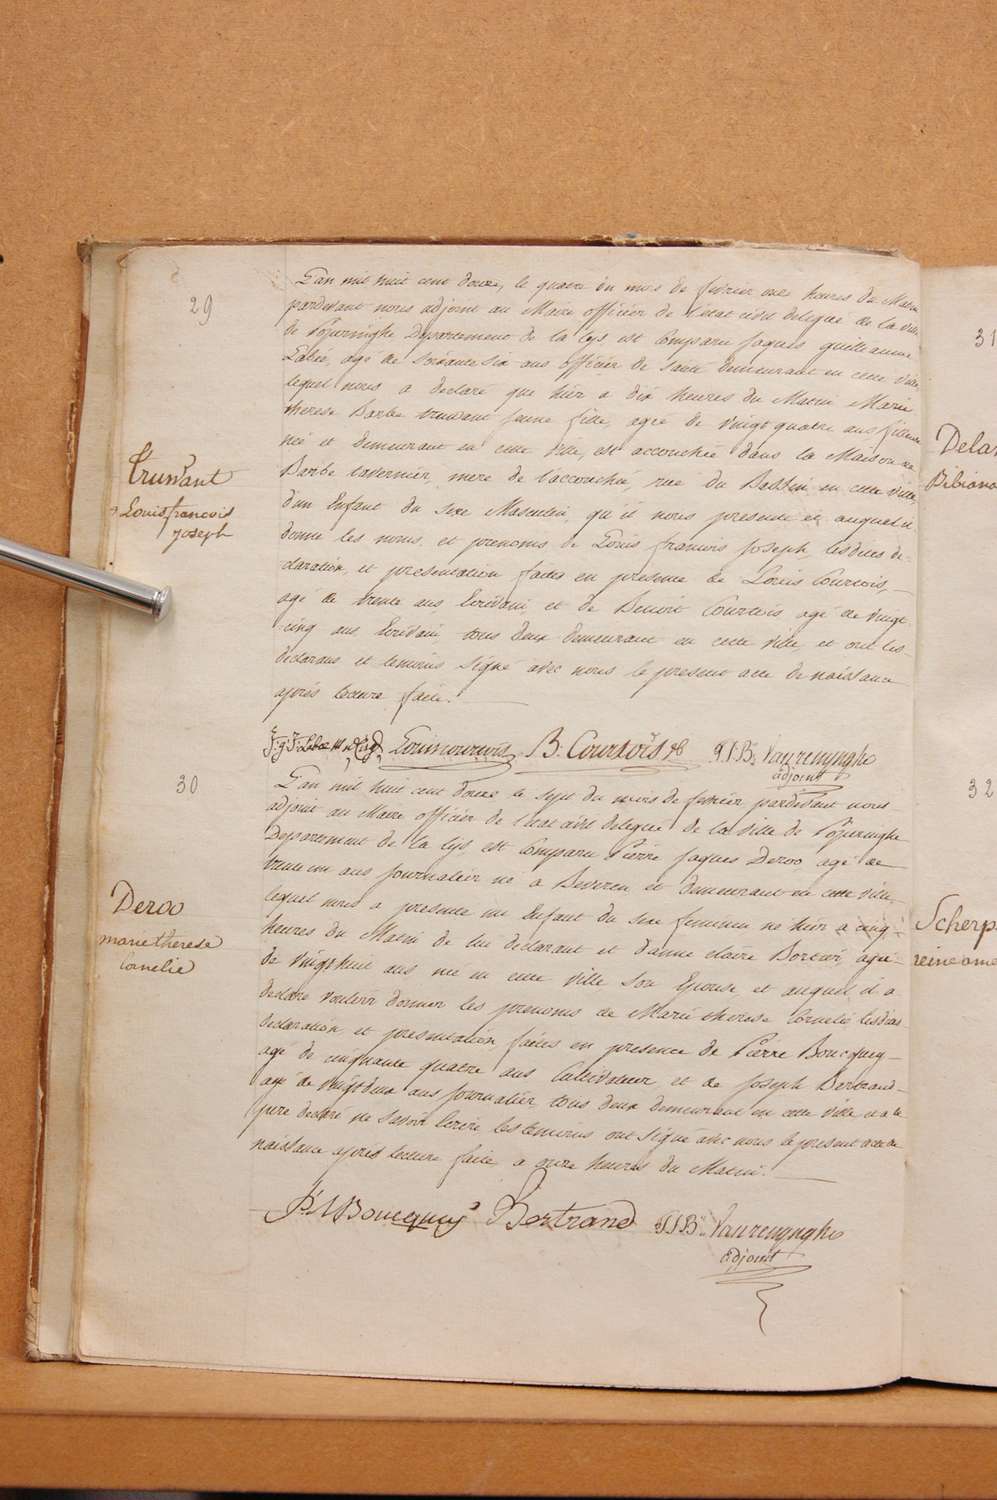 29
L'an mil huit cent douze, le quatre du mois de fevrier onze heures du Matin
pardevant nous adjoint au Maire officier de l'etat civil delegué de la ville
de Poperinghe Departement de la Lys est Comparu Jaques guillaume
Labee, agé de soixante six ans officier de santé demeurant en cette ville
lequel nous a declaré que hier a dix heures du Matin Marie
therese Barbe truwant jeune fille, agée de vingt quatre ans fileuse
née et demeurant en cette ville, est accouchée dans la Maison de
Barbe tavernier, mere de l'accouchée, rue du Bassin en cette ville,
d'un Enfant du sexe Masculin, qu'il nous presente et auquel il
donne les noms et prenoms de Louis francois Joseph, lesdites de-
claration, et presentation faites en presence de Louis Courtois,
agé de trente ans Ecrivain, et de Benoit Courtois agé de vingt-
cinq ans, Ecrivain, tous deux demeurant en cette ville, et ont les
declarans et temoins signé avec nous le present acte de naissance
après lecture faite.
Truwant
Louis francois
Joseph
Louis courtois B. Courtois P.J.B. Vanrenynghe
adjoint
30
L'an mil huit cent douze le sept du mois de fevrier pardevant nous
adjoint au Maire officier de l'etat civil delegué de la ville de Poperinghe
Departement de la Lys, est Comparu Pierre Jaques Deroo, agé de
trente un ans journalier né a Beveren et demeurant en cette ville,
lequel nous a presenté un Enfant du sexe feminin né hier a cinq
heures du Matin de lui declarant et d'anne claire agée
de vingthuit ans née en cette ville son Epouse, et auquel il a
declaré vouloir donner les prenoms de Marie therese Cornelie, lesdites
declaration, et presentation faites en presence de Pierre Boucquey
agé de cinquante quatre ans Cultivateur, et de Joseph Bertrand
agé de vingtdeux ans journalier, tous deux demeurant en cette ville, et a le
pere declaré ne savoir Ecrire les temoins ont signé avec nous le present acte de
naissance après lecture faite a onze heures du Matin.
Deroo
marie therese
Cornelie
Boucquey Bertrand P.J.B. Vanrenynghe
adjoint
31
32
Scherp